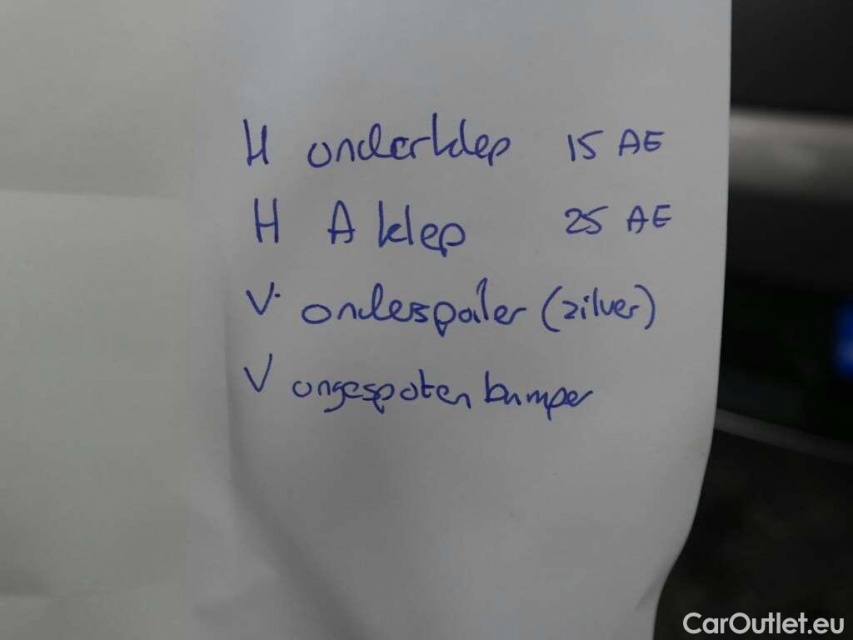 H onderklep 15 AE
H A klep 25 AE
V. ondespoiler (zilver)
V ongespoten bumper
CarOutlet.eu